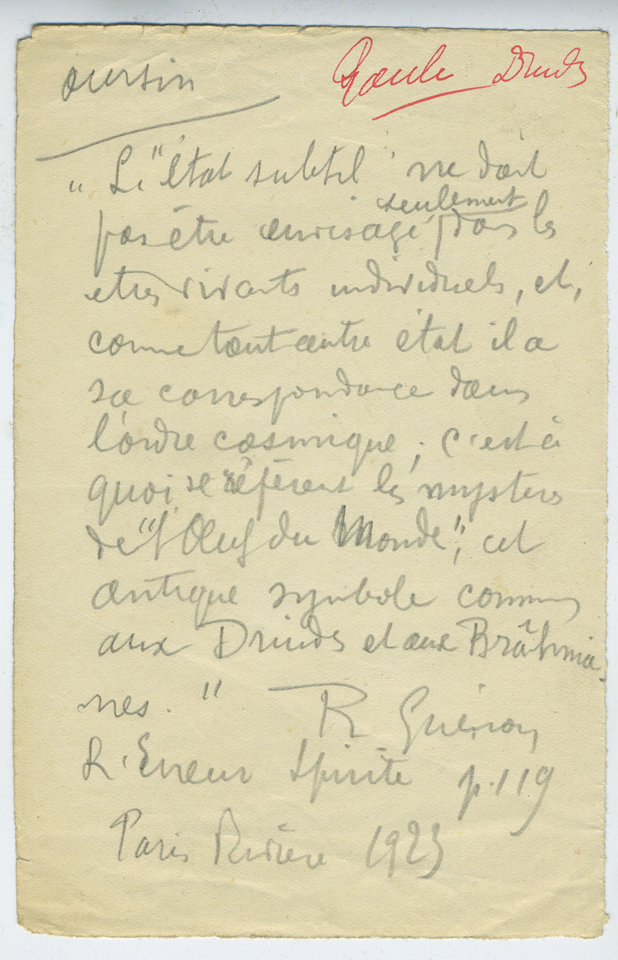 oursin
Gaule Druides
"L'"état subtil" ne doit
pas être envisagé seulement dans les
êtres vivants individuels, et,
comme tout autre état il a
sa correspondance dans
l'ordre cosmique ; c'est à
quoi se réfèrent les mystères
de "l'Œuf du Monde", cet
antique symbole commun
aux Druides et aux Brâhma-
nes."
R Guénon
L'Erreur Spirite p.119
Paris Rivière 1923